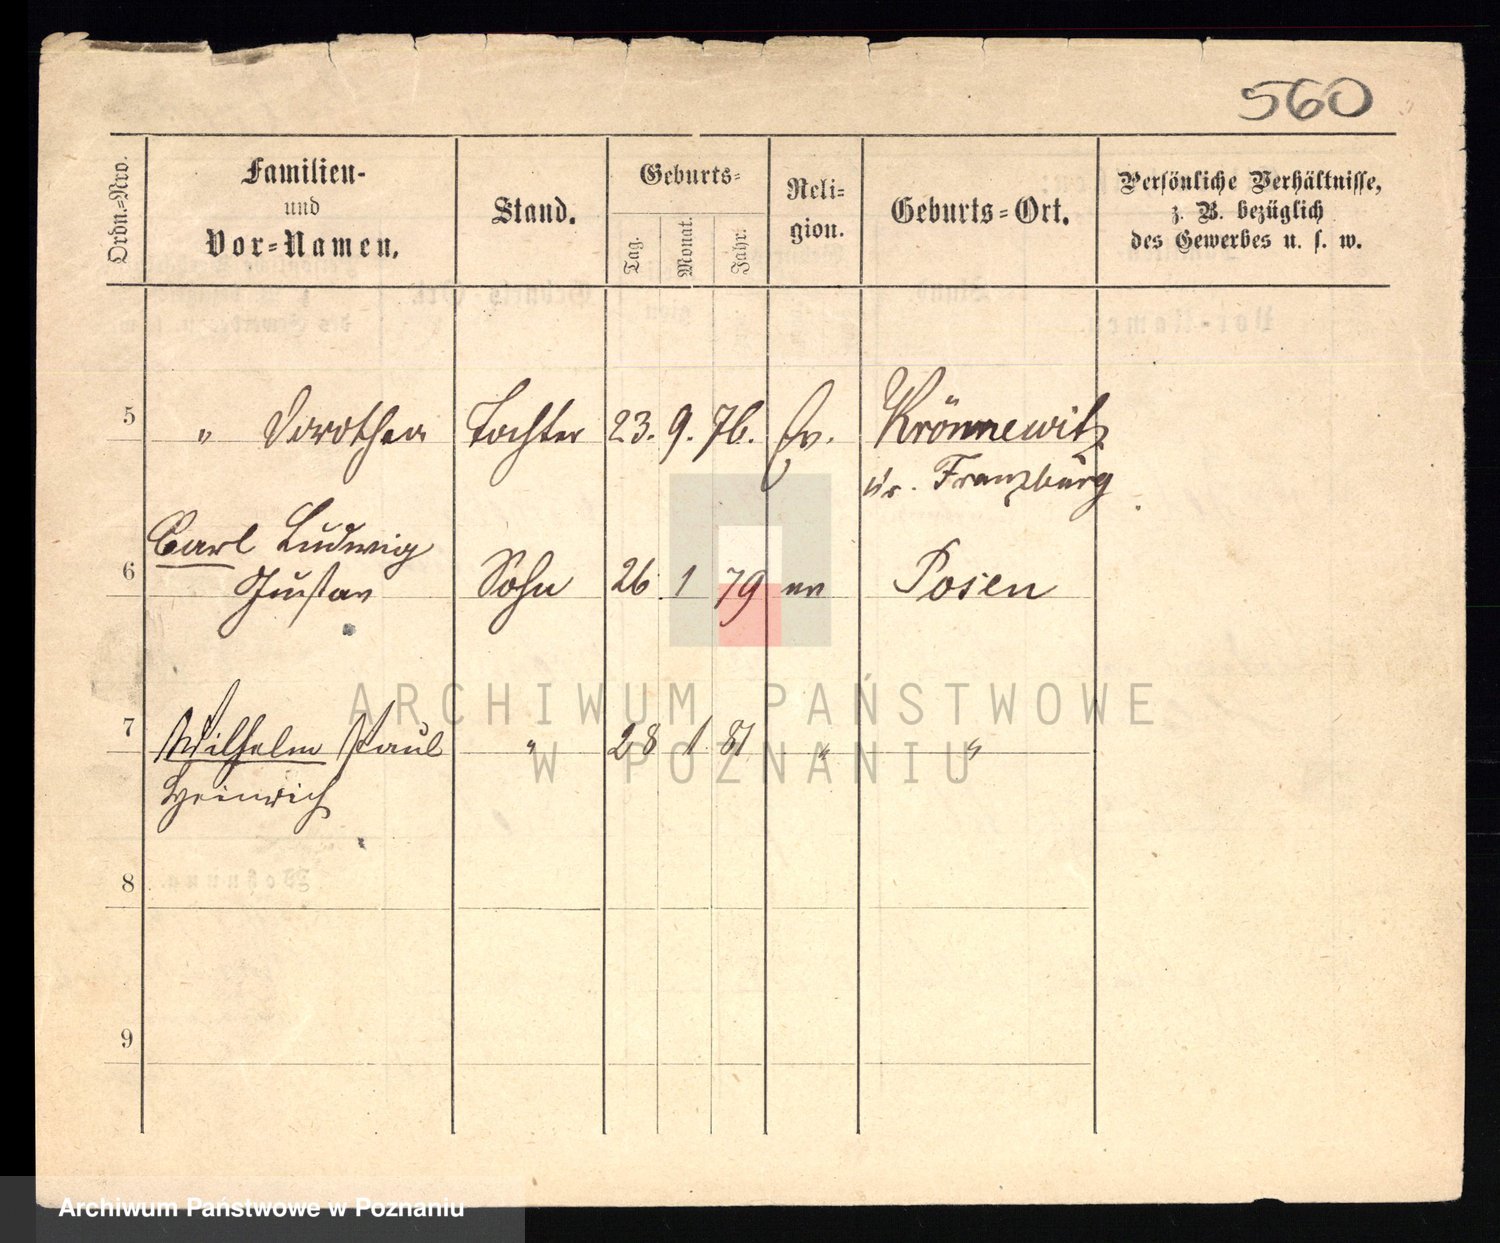 560
Ordn.-Nro.
Familien-
und
Vor-Namen.
Stand.
Geburts-
Tag.
Monat.
Jahr.
Reli-
gion.
Geburts-Ort.
Persönliche Verhältnisse,
z. B. bezüglich
des Gewerbes u. s. w.
5 " Dorothea Tochter 23. 9. 76. Ev. Krönnewitz
Kr. Franzburg
Carl Ludwig
6 Gustav Sohn 26 1 79 ev Posen
7 Wilhelm Paul " 28 1 81 " "
Heinrich
8
9
ARCHIWUM PAŃSTWOWE
W POZNANIU
Archiwum Państwowe w Poznaniu